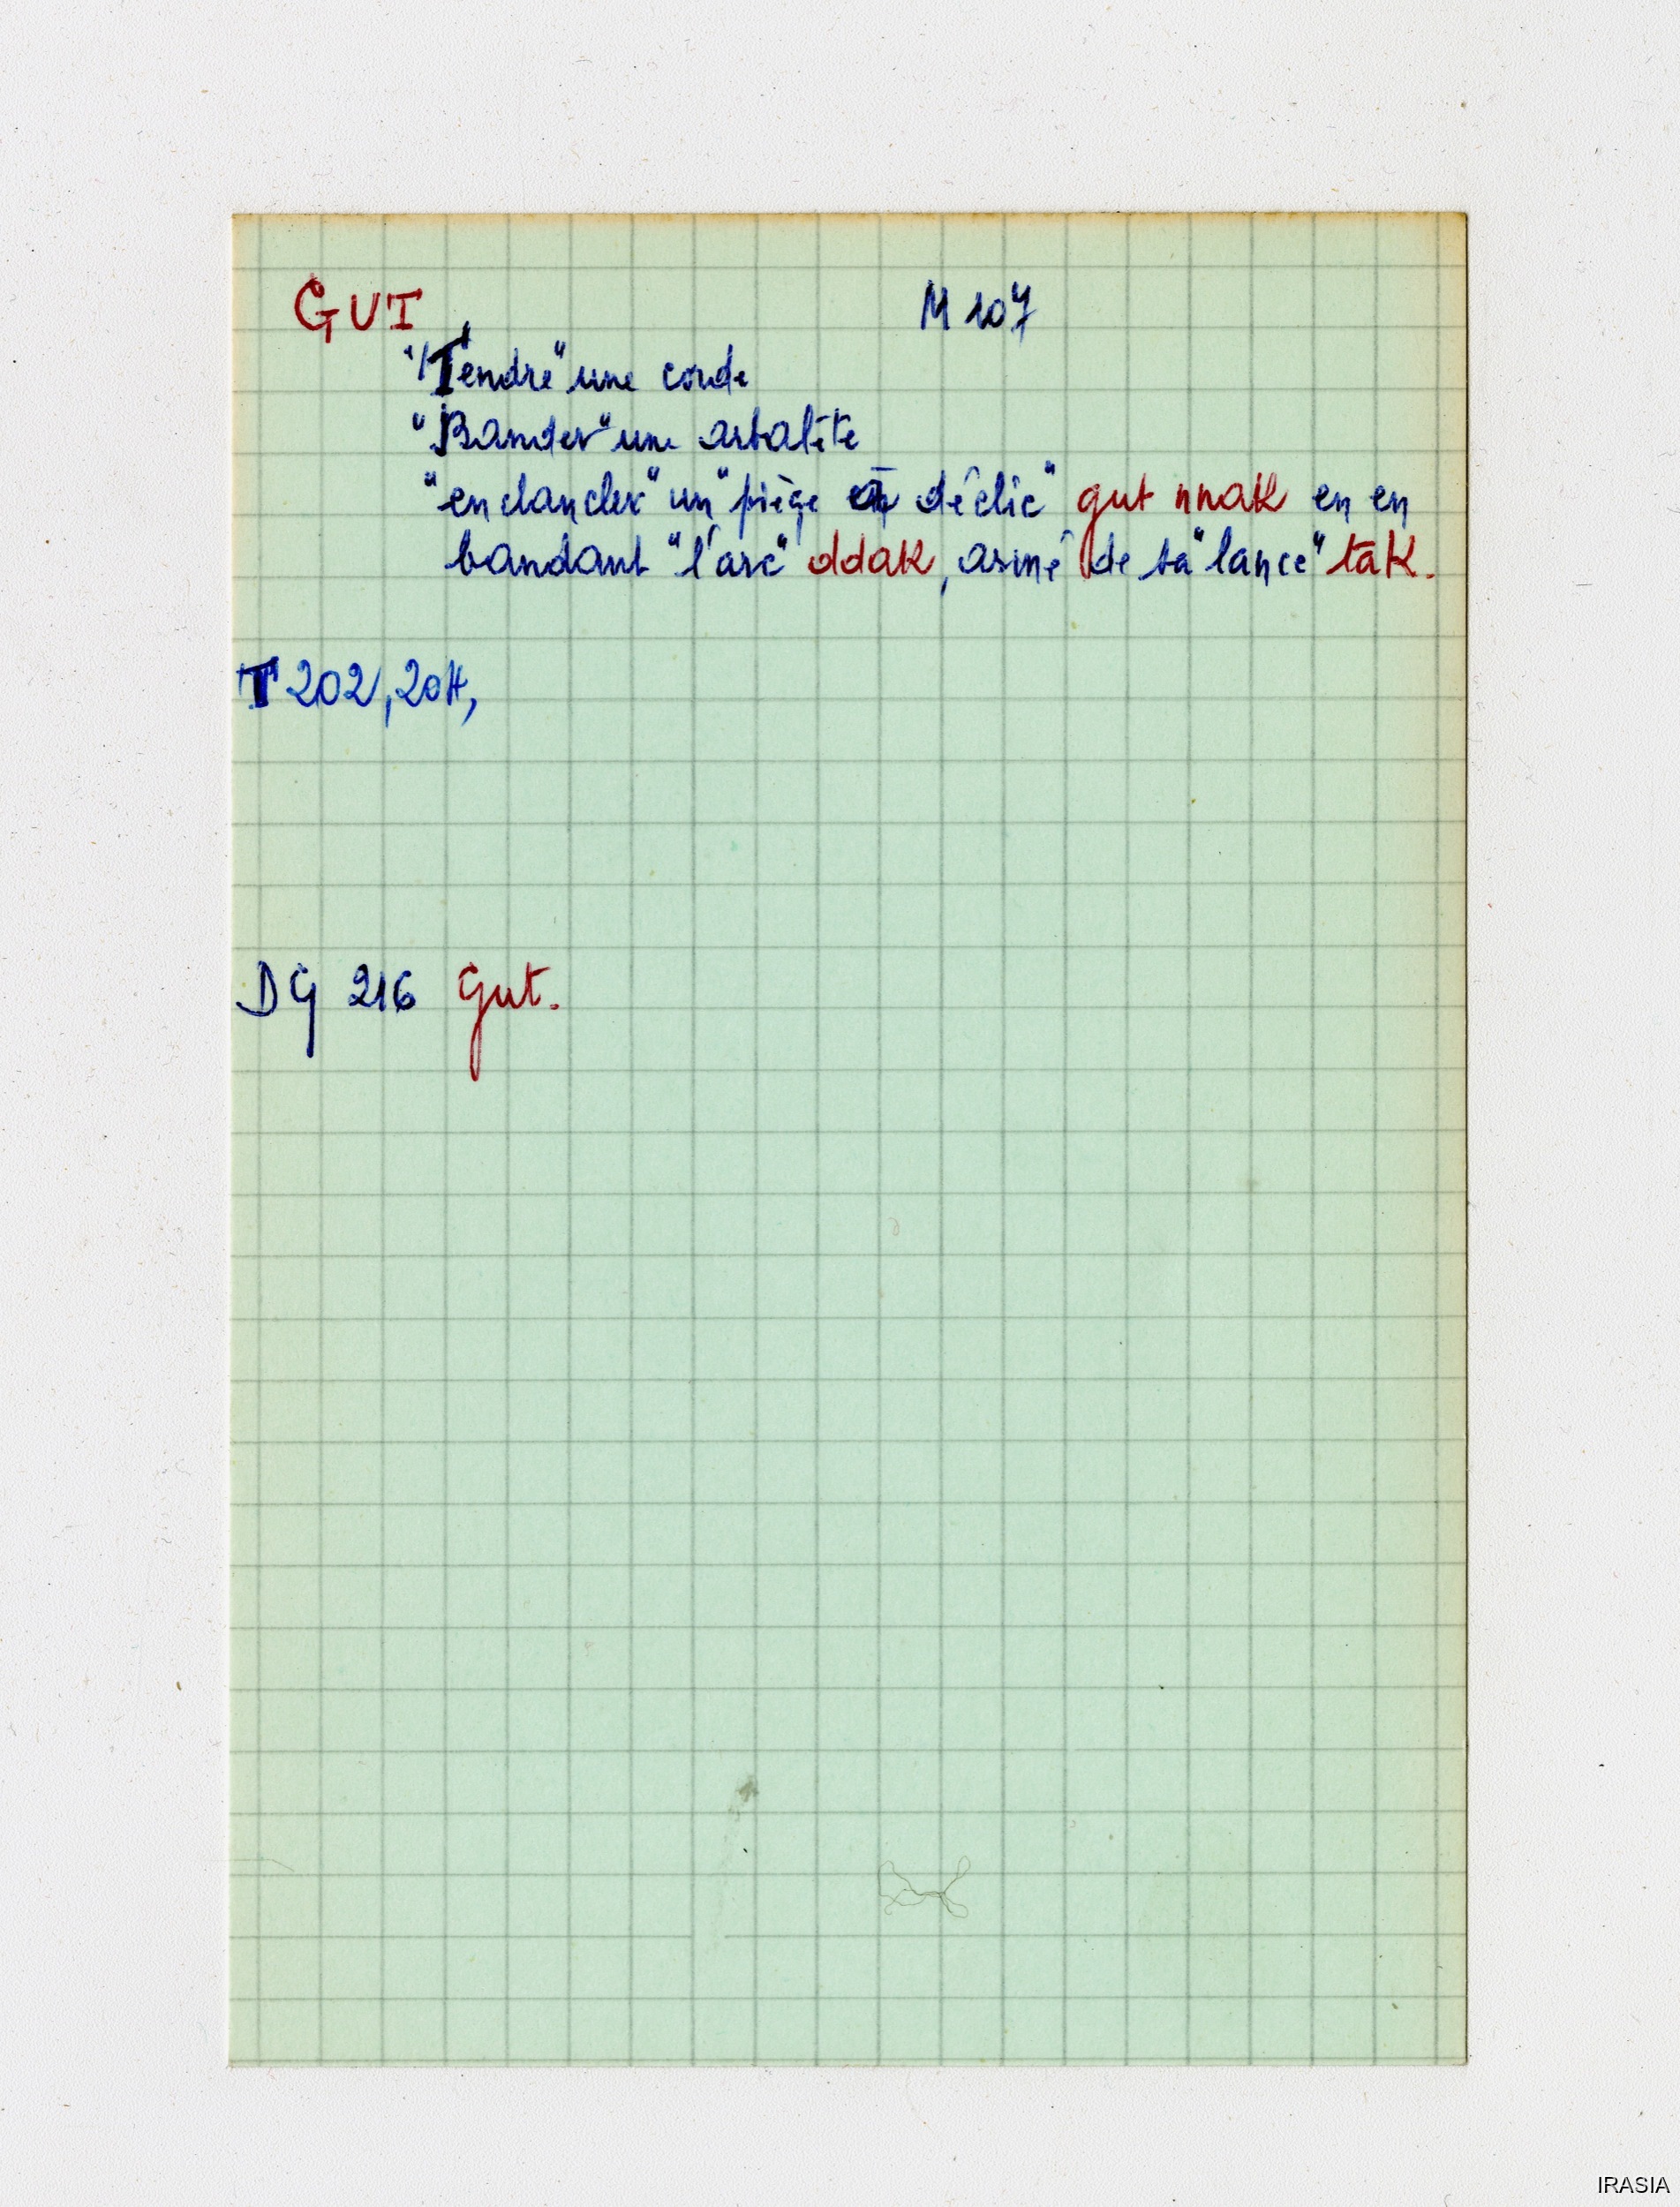 GUT M 107
"Tendre" une corde
"Bander" une arbalète
"enclancher" un "piège à déclic" gut nnak en en
bandant "l'arc" ddak, armé de sa "lance" tak.
T 202, 204,
DG 216 Gut.
IRASIA